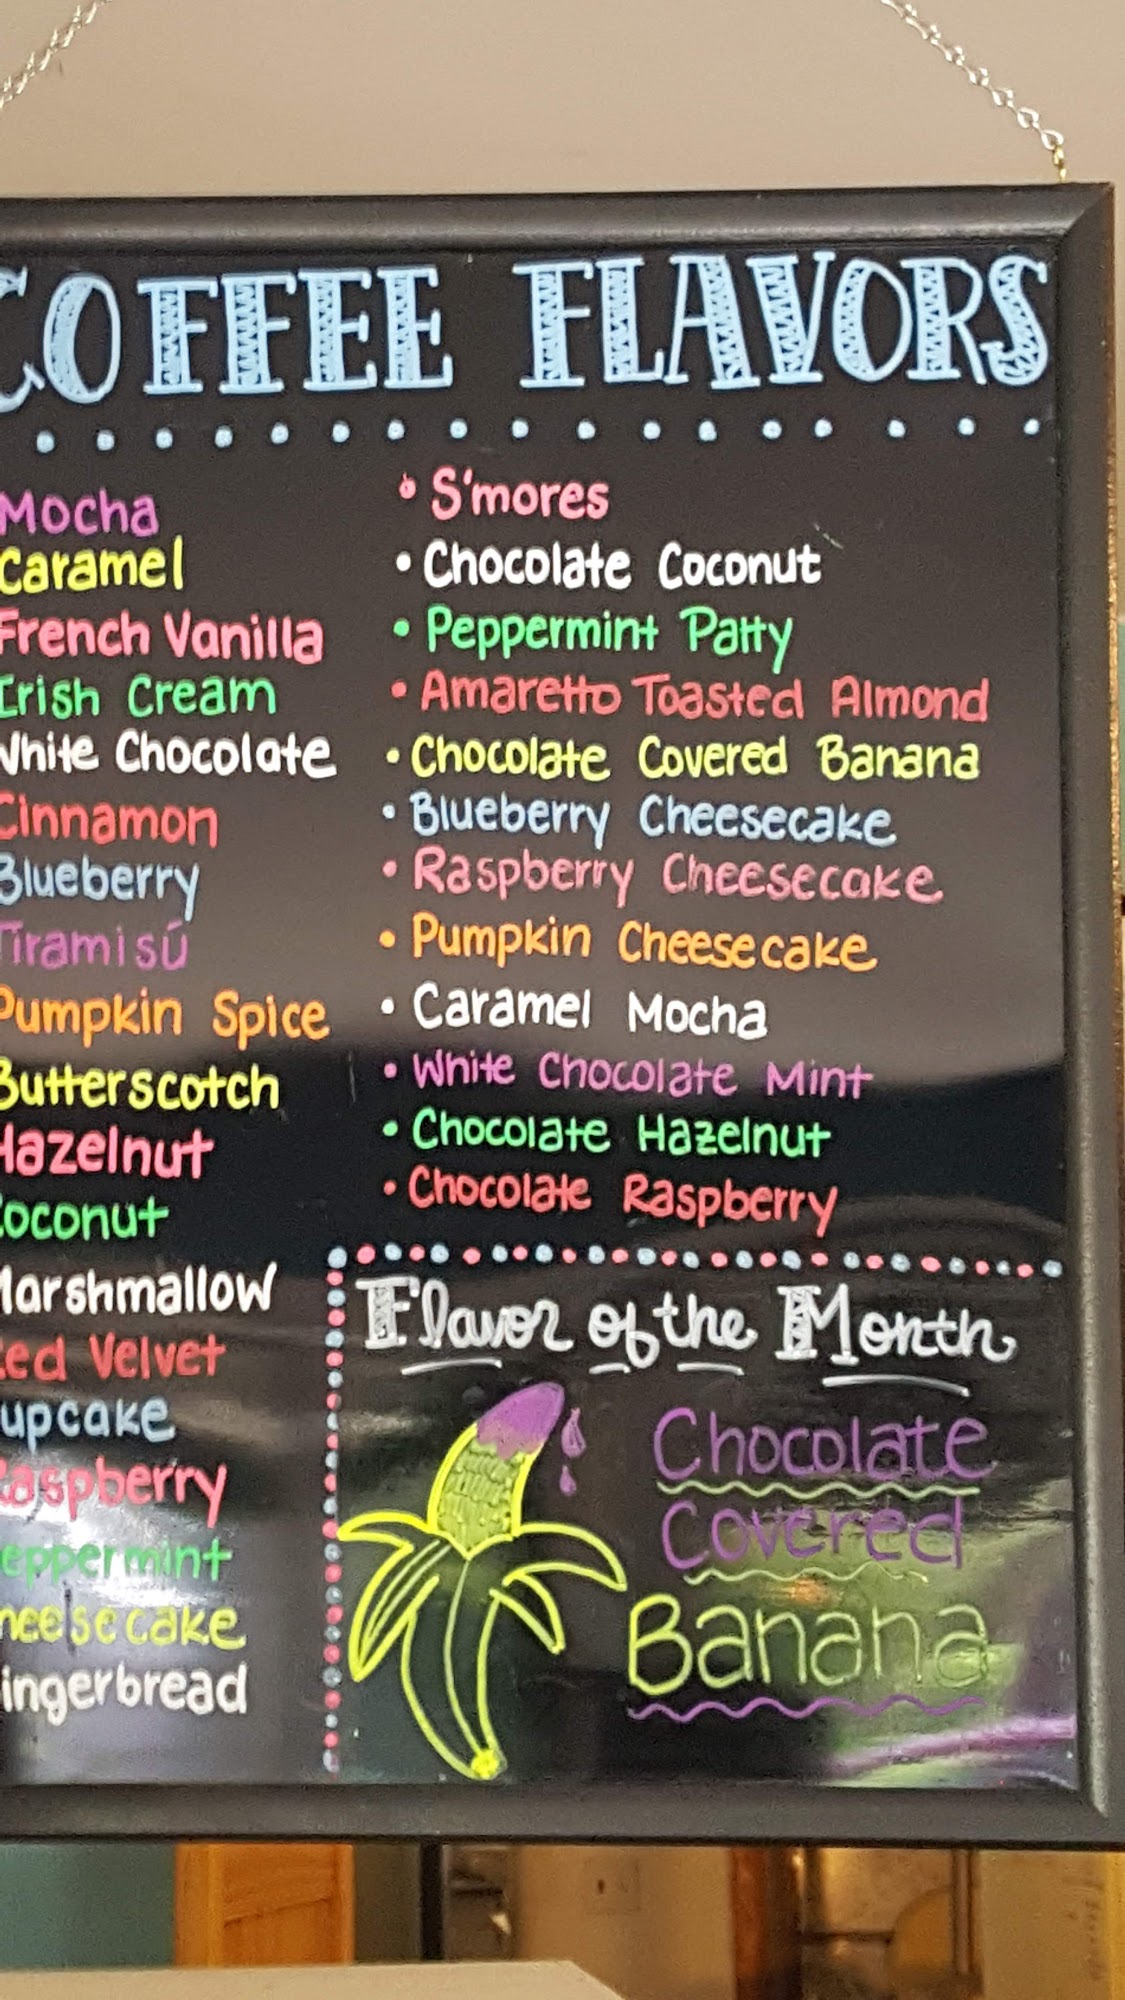 COFFEE FLAVORS
Mocha
Caramel
French Vanilla
Irish Cream
White Chocolate
Cinnamon
Blueberry
Tiramisú
Pumpkin Spice
Butterscotch
Hazelnut
Coconut
Marshmallow
Red Velvet
upcake
Raspberry
eppermint
heesecake
ingerbread
• S'mores
• Chocolate Coconut
• Peppermint Patty
• Amaretto Toasted Almond
• Chocolate Covered Banana
• Blueberry Cheesecake
• Raspberry Cheesecake
• Pumpkin Cheesecake
• Caramel Mocha
• White Chocolate Mint
• Chocolate Hazelnut
• Chocolate Raspberry
Flavor of the Month
Chocolate
Covered
Banana